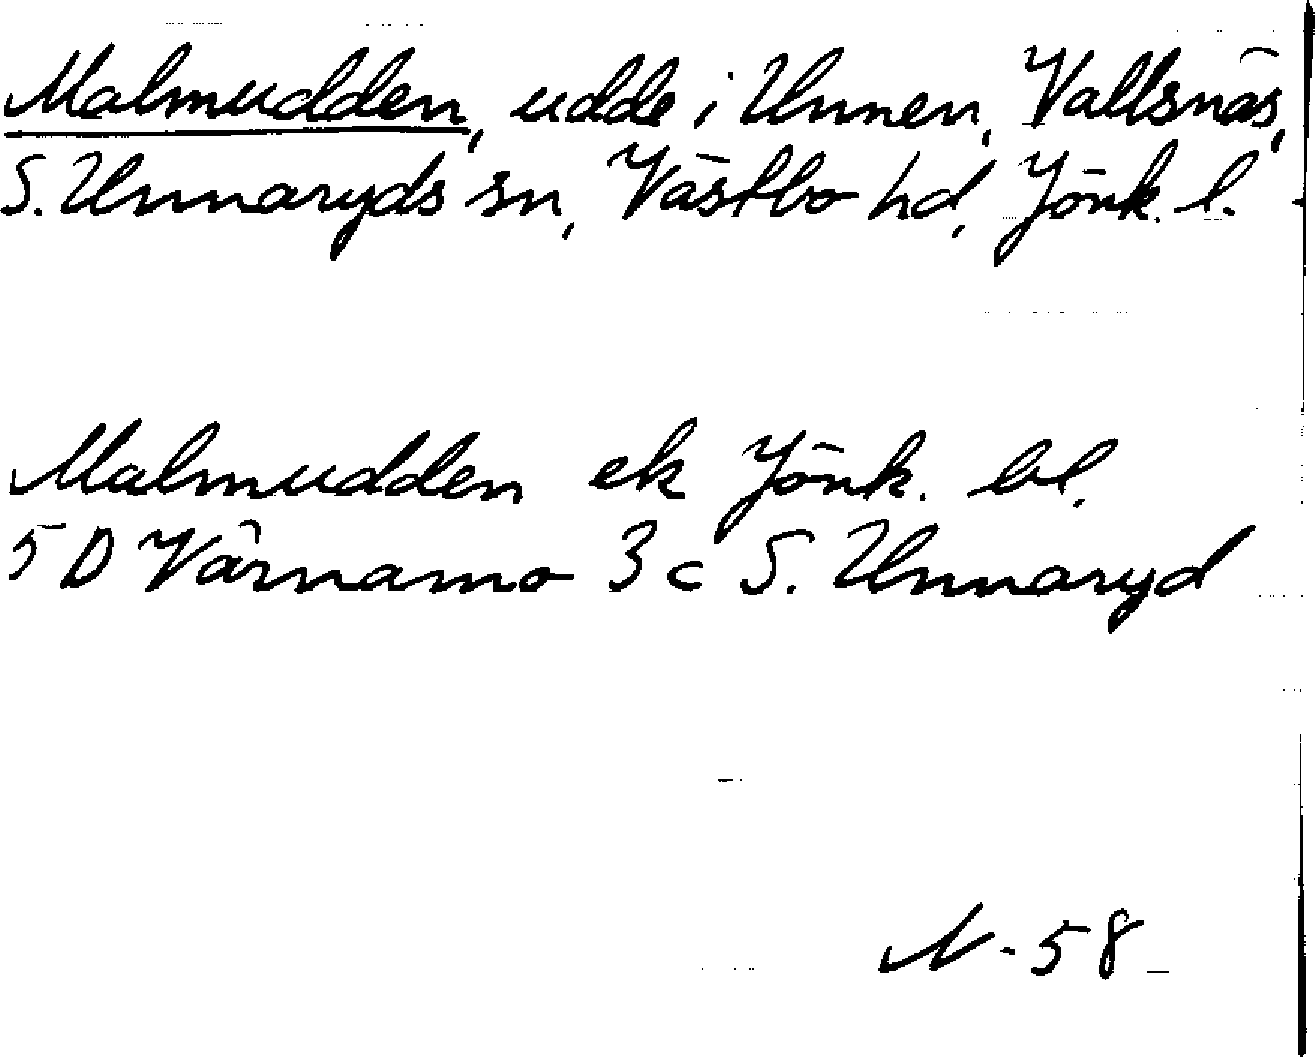 Malmudden, udde i Unnen, Vallsnäs,
S. Unnaryds sn, Västbo hd, Jönk. l.
Malmudden ek Jönk. bl.
5 D Värnamo 3 c S. Unnaryd
N - 58